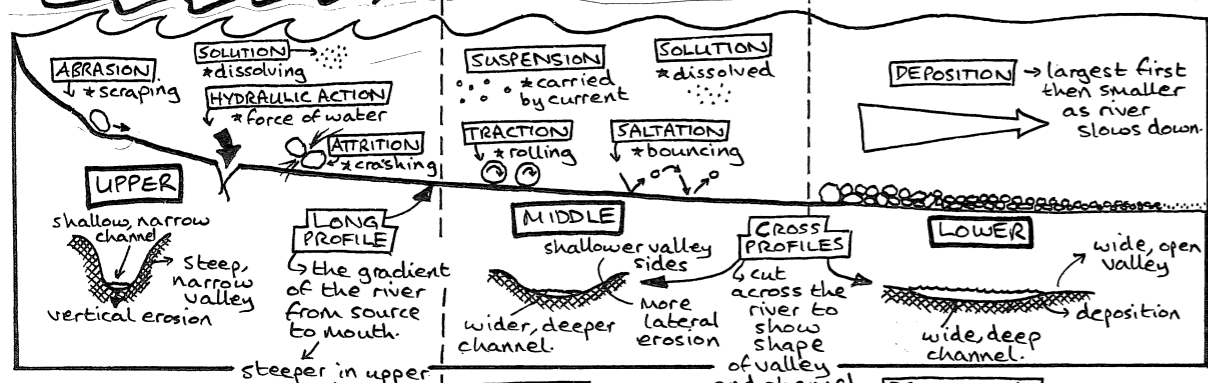 SOLUTION
*dissolving
ABRASION
*scraping
HYDRAULIC ACTION
*force of water
ATTRITION
*crashing
UPPER
shallow, narrow
channel
steep,
narrow
valley
vertical erosion
LONG
PROFILE
the gradient
of the river
from source
to mouth.
steeper in upper
SUSPENSION
*carried
by current
SOLUTION
*dissolved
TRACTION
*rolling
SALTATION
*bouncing
MIDDLE
shallower valley
sides
wider, deeper
channel.
more
lateral
erosion
CROSS
PROFILES
cut
across the
river to
show
shape
of valley
and channel
DEPOSITION
largest first
then smaller
as river
slows down.
LOWER
wide, open
valley
deposition
wide, deep
channel.